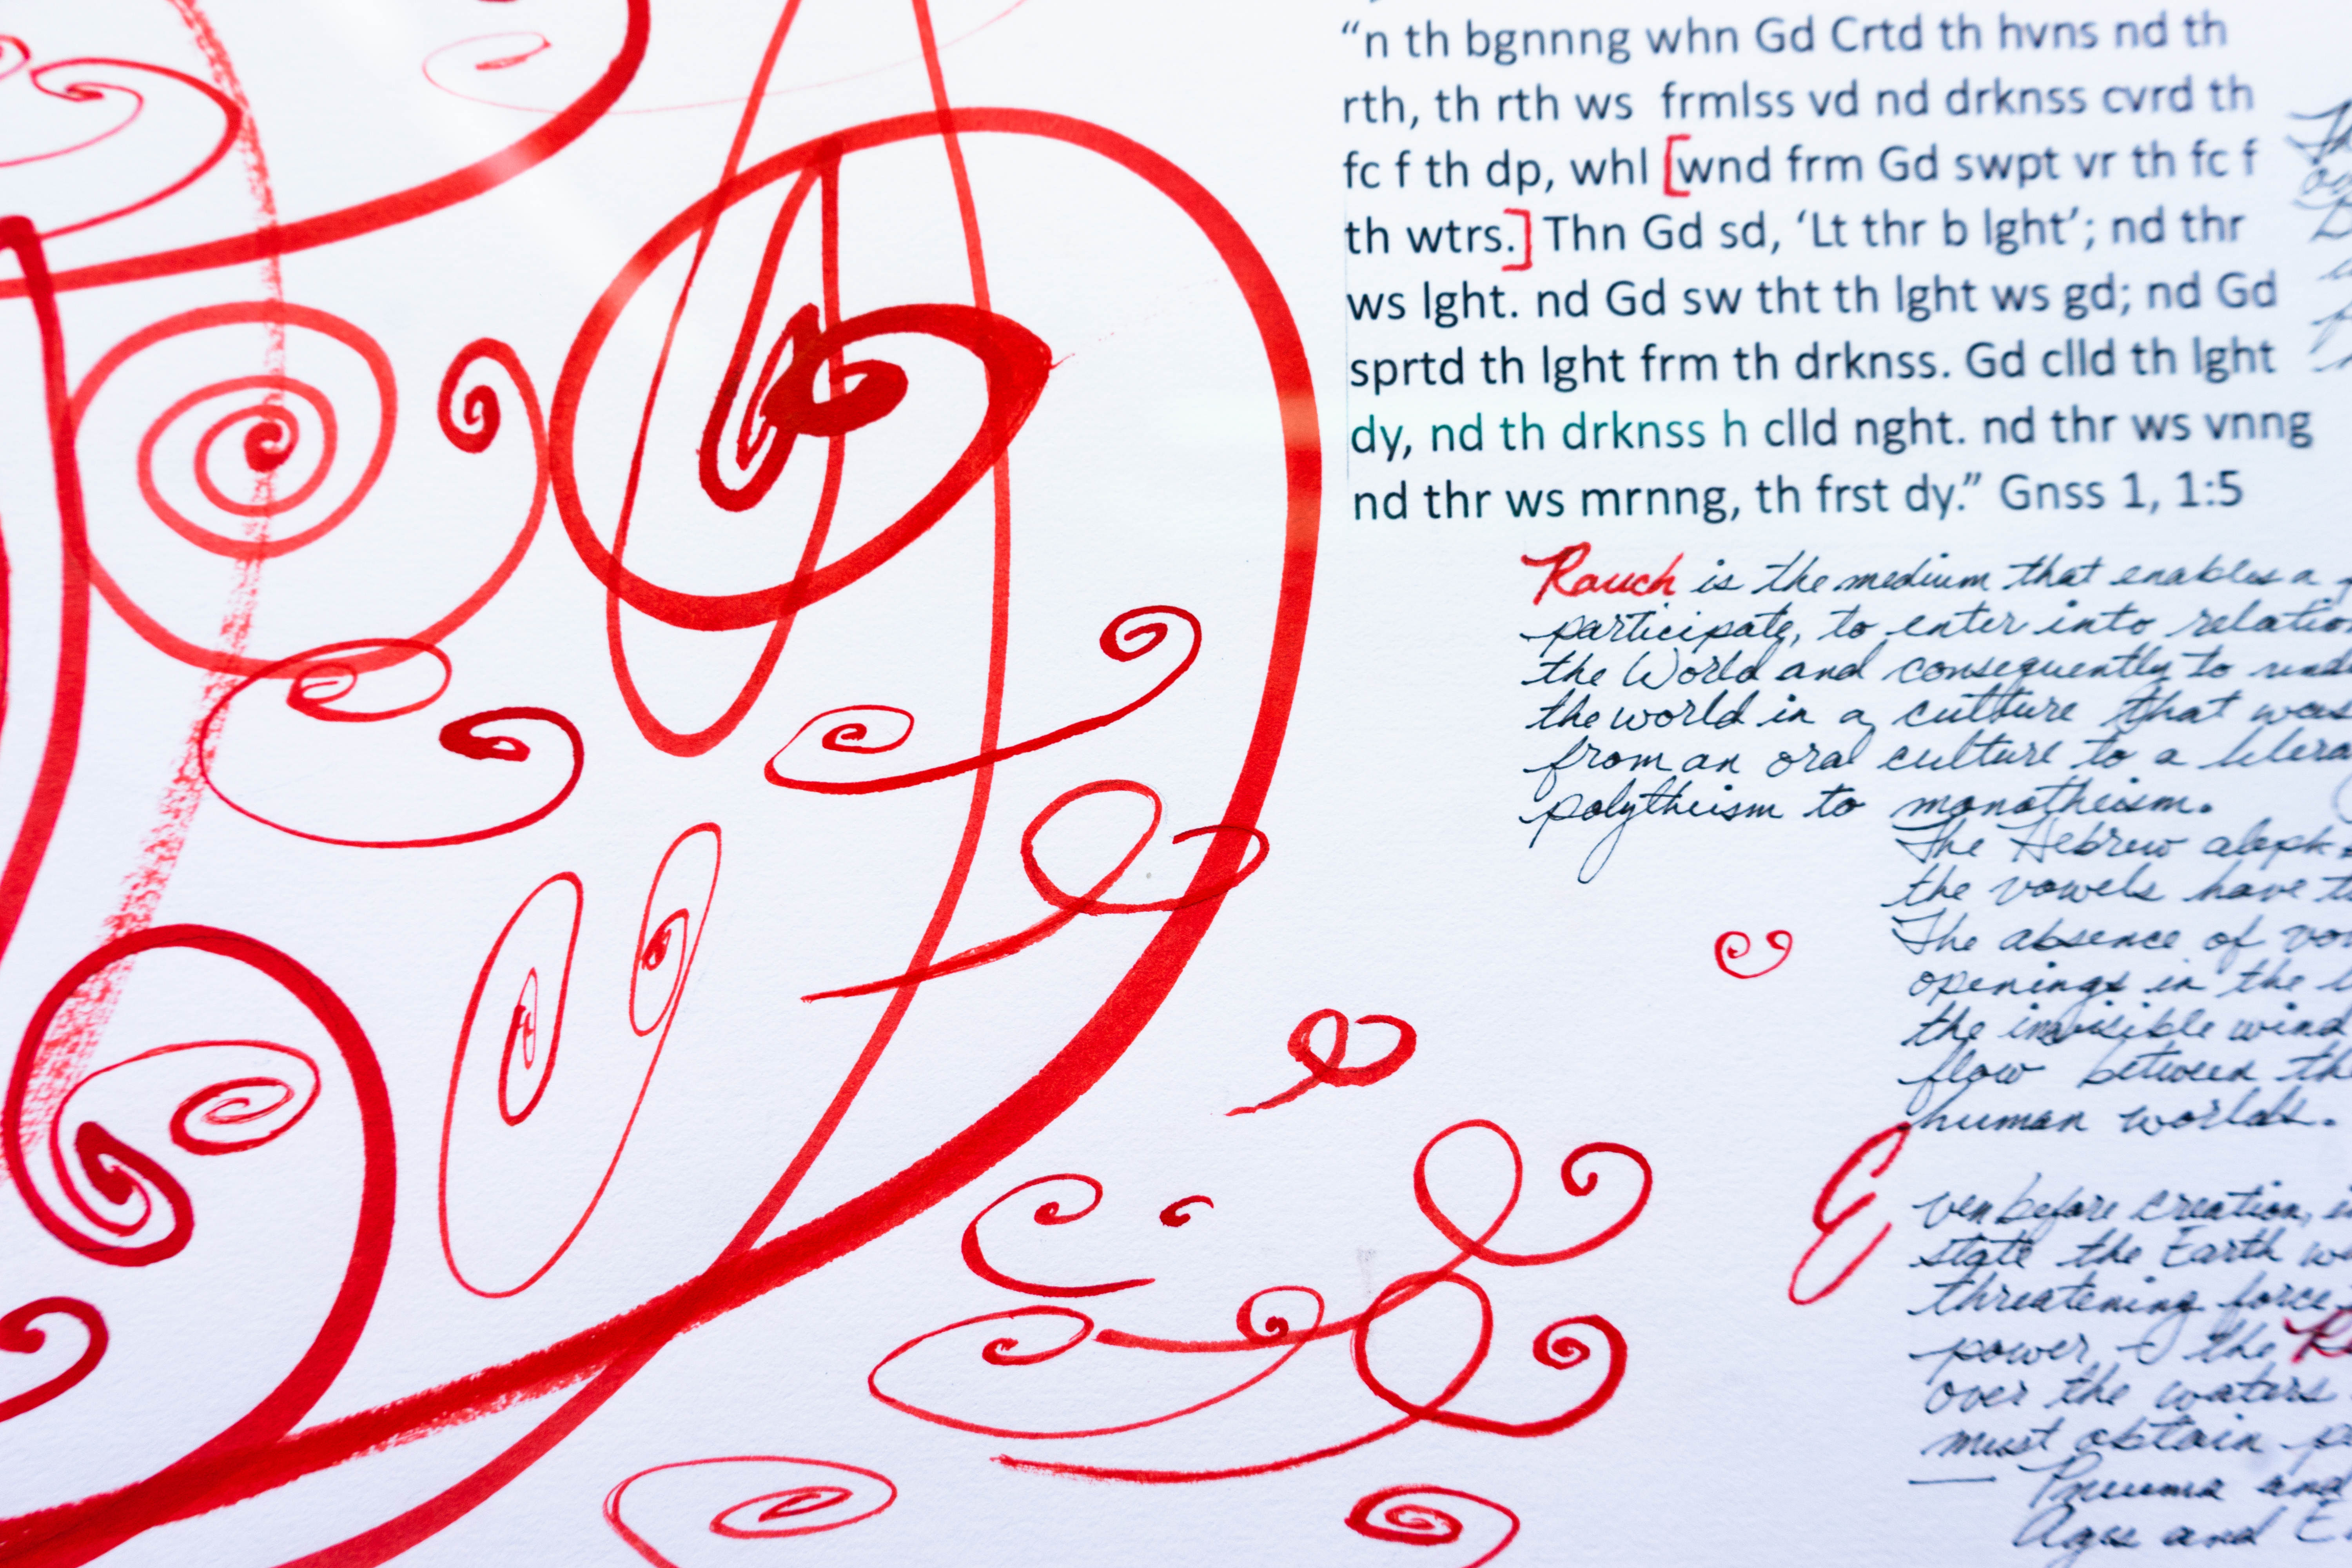 “n th bgnnng whn Gd Crtd th hvns nd th
rth, th rth ws frmlss vd nd drknss cvrd th
fc f th dp, whl [wnd frm Gd swpt vr th fc f
th wtrs.] Thn Gd sd, ‘Lt thr b lght’; nd thr
ws lght. nd Gd sw tht th lght ws gd; nd Gd
sprtd th lght frm th drknss. Gd clld th lght
dy, nd th drknss h clld nght. nd thr ws vnng
nd thr ws mrnng, th frst dy.” Gnss 1, 1:5
Rauch is the medium that enables a
participate, to enter into relation
the World and consequently to
the world in a culture that was
from an oral culture to a
polytheism to monotheism.
The Hebrew
the vowels have
The absence of
openings in the
the invisible wind
flow between the
human worlds.
Even before creation,
state the Earth
threatening force
power, the
over the waters
must obtain
— Pneuma and
Ages and